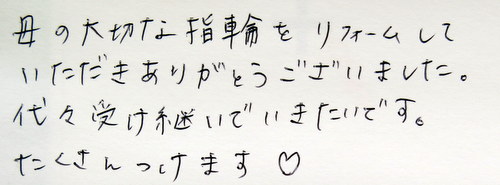 母の大切な指輪をリフォームして
いただきありがとうございました。
代々受け継いでいきたいです。
たくさんつけます♡